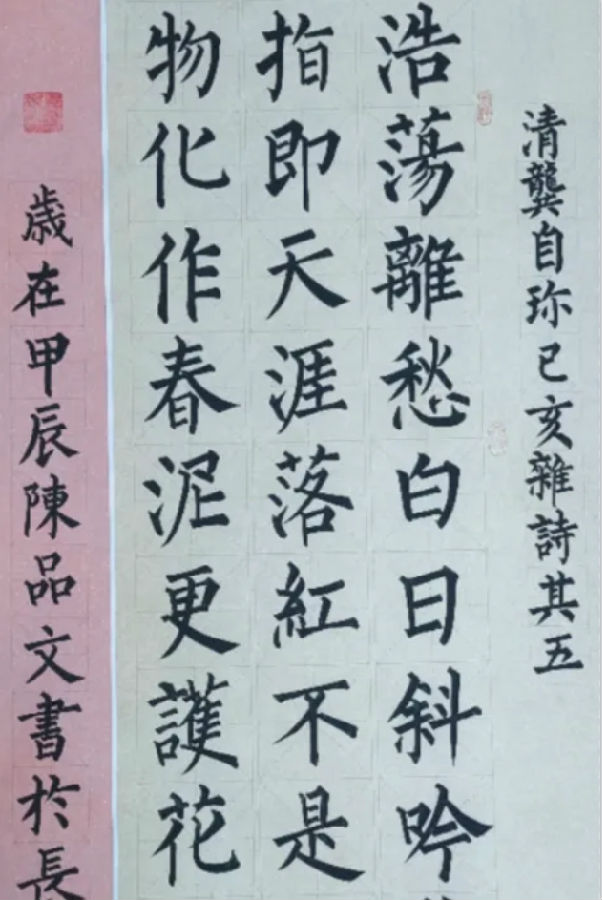 清龔自珍己亥雜詩其五
浩蕩離愁白日斜吟
指即天涯落紅不是
物化作春泥更護花
歲在甲辰陳品文書於長